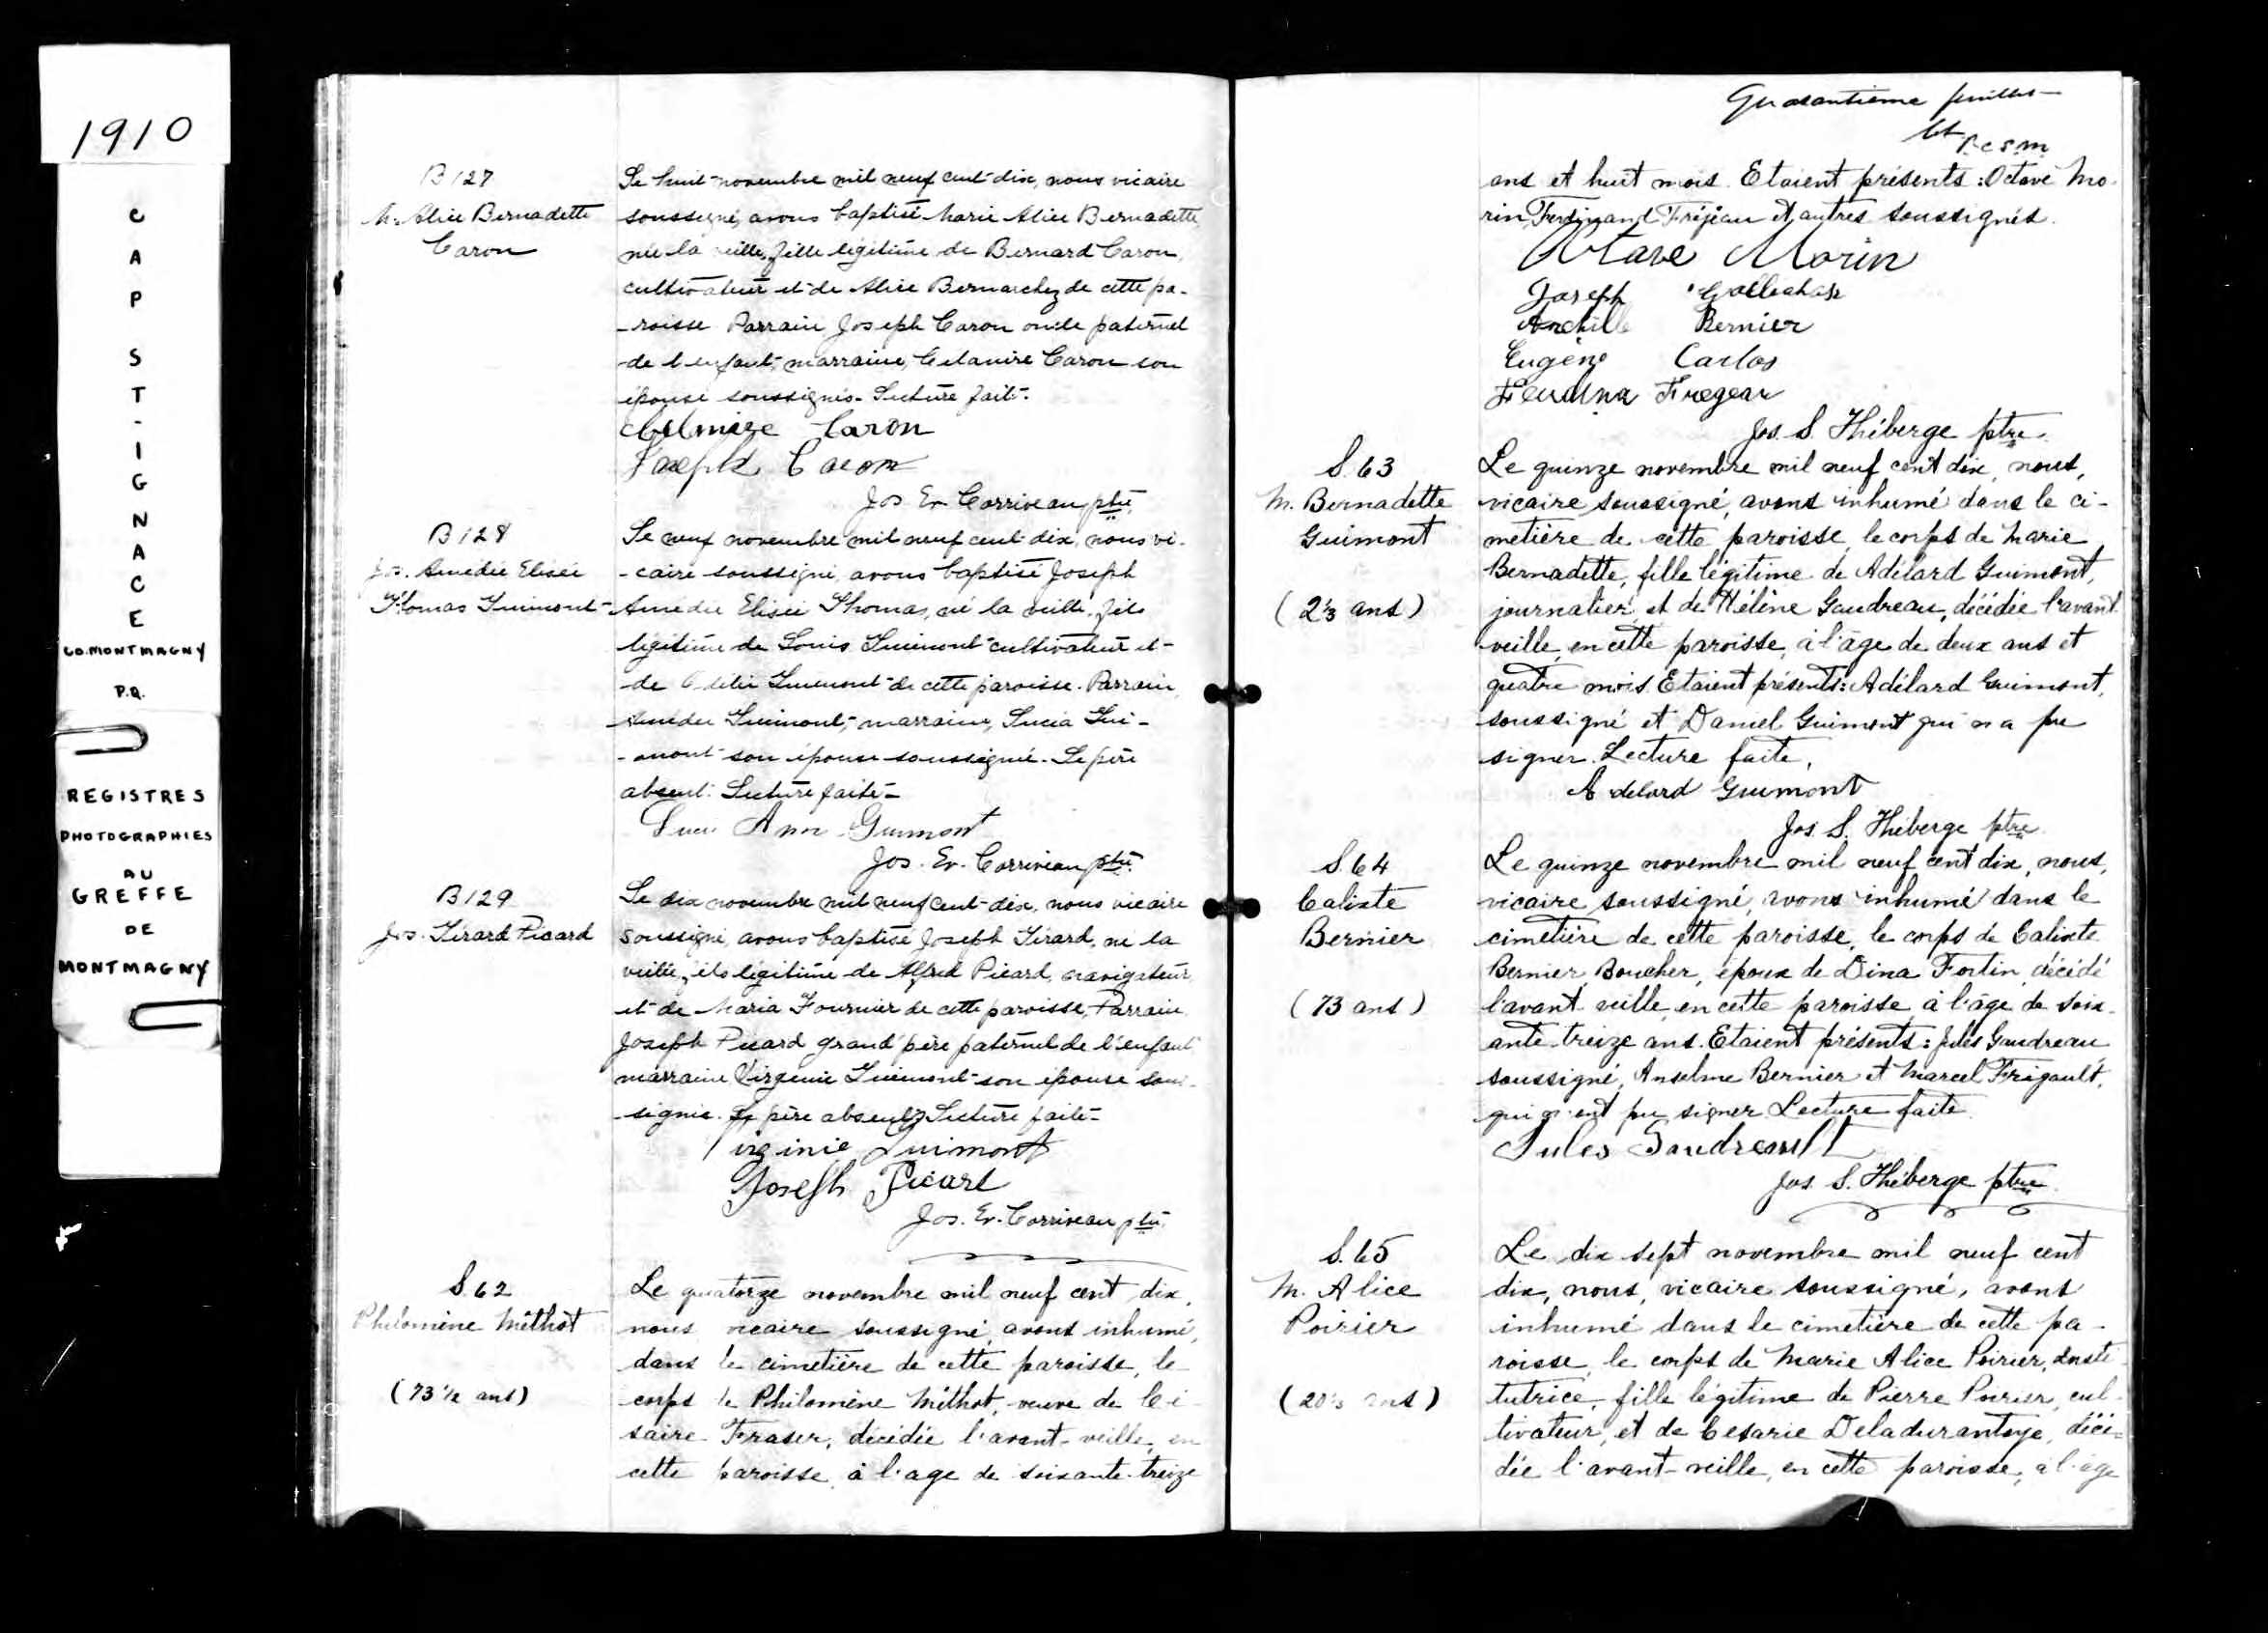 1910
CAP ST-IGNACE
CO. MONTMAGNY
P.Q.
REGISTRES
PHOTOGRAPHIES
AU
GREFFE
DE
MONTMAGNY
B 127
M. Alice Bernadette
Caron
Le huit novembre mil neuf cent dix, nous vicaire
soussigné, avons baptisé Marie Alice Bernadette
née la veille, fille légitime de Bernard Caron,
cultivateur et de Alice Bernarchez de cette pa-
-roisse Parrain Joseph Caron oncle paternel
de l'enfant, marraine, Caron son
épouse soussignés. Lecture faite.
Caron
Joseph Caron
Jos. Ev. Corriveau ptre
B 128
Jos. Amédée Elisée
Thomas Guimont
Le neuf novembre mil neuf cent dix, nous vi-
-caire soussigné, avons baptisé Joseph
Amédée Elisée Thomas, né la veille, fils
légitime de Louis Guimont cultivateur et
de Guimont de cette paroisse. Parrain,
Amédée Guimont, marraine, Lucia Gui-
-mont son épouse soussignée. Le père
absent. Lecture faite
Guimont
Jos. Ev. Corriveau ptre.
B 129
Jos. Gérard Picard
Le dix novembre mil neuf cent dix, nous vicaire
soussigné, avons baptisé Joseph Gérard, né la
veille, fils légitime de Alfred Picard, navigateur
et de Maria Fournier de cette paroisse, Parrain
Joseph Picard grand'père paternel de l'enfant
marraine Virginie Guimont son épouse sous-
-signés. Le père absent Lecture faite
Virginie Guimont
Joseph Picard
Jos. Ev. Corriveau ptre.
S. 62
Philomène Méthot
(73 1/2 ans)
Le quatorze novembre mil neuf cent dix,
nous vicaire soussigné, avons inhumé,
dans le cimetière de cette paroisse, le
corps de Philomène Méthot, veuve de Cé-
saire Fraser, décédée l'avant-veille, en
cette paroisse, à l'age de soixante-treize
Quarantième feuillet
ans et huit mois. Etaient présents: Octave Mo-
rin, Ferdinand Fréjeau et autres soussignés.
Octave Morin
Joseph
Archille Bernier
Eugène Carlos
Fregeau
Jos. S. Théberge ptre.
S. 63
M. Bernadette
Guimont
(2 1/3 ans)
Le quinze novembre mil neuf cent dix, nous,
vicaire soussigné, avons inhumé dans le ci-
metière de cette paroisse, le corps de Marie
Bernadette, fille légitime de Adélard Guimont,
journalier, et de Hélène Gaudreau, décédée l'avant
veille, en cette paroisse, à l'âge de deux ans et
quatre mois. Etaient présents: Adélard Guimont,
soussigné et Daniel Guimont qui n'a pu
signer. Lecture faite.
Adelard Guimont
Jos. S. Théberge ptre
S. 64
Calixte
Bernier
(73 ans)
Le quinze novembre mil neuf cent dix, nous,
vicaire soussigné, avons inhumé dans le
cimetière de cette paroisse, le corps de Calixte
Bernier, Boucher, époux de Dina Fortin, décédé
l'avant veille, en cette paroisse à l'âge de soix-
ante-treize ans. Etaient présents: Jules Gaudreau
soussigné, Anselme Bernier et Marcel Frigault,
qui n'ont pu signer Lecture faite
Jules Gaudreault
Jos. S. Théberge ptre
S. 65
M. Alice
Poirier
(20 1/2 ans)
Le dix sept novembre mil neuf cent
dix, nous, vicaire soussigné, avons
inhumé dans le cimetière de cette pa-
roisse, le corps de Marie Alice Poirier, Insti-
tutrice, fille légitime de Pierre Poirier, cul-
tivateur, et de Cesarie Deladurantaye, décé-
dée l'avant-veille, en cette paroisse, à l'âge